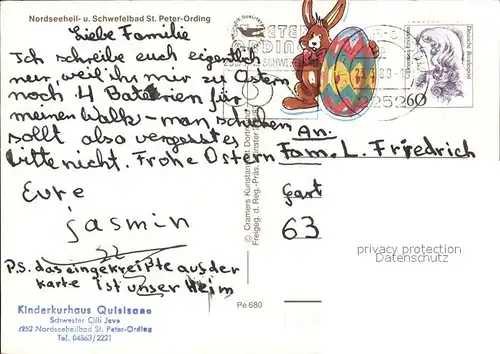 Nordseeheil- u. Schwefelbad St. Peter-Ording
Liebe Familie
Ich schreibe euch eigentlich
nur, weil ihr mir zu Ostern
noch 4 Baterien für
meinen Walk-man schieben
sollt also vergesst es
bitte nicht. Frohe Ostern
Eure
Jasmin
P.S. das eingekreißte auf der
Karte ist unser Heim
Kinderkurhaus Quisisano
Schwester Cilli Jeve
2252 Nordseeheilbad St. Peter-Ording
Tel. 04863/2221
© Cramers Kunstanstalt Dortmund
Freigeg. d. Reg.-Präs. Münster
Pe 680
2252
60
Deutsche Bundespost
An.
Fam. L. Friedrich
63
privacy protection
Datenschutz